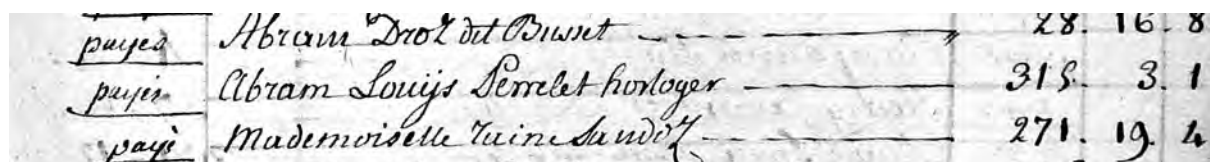 payes Abram Droz dit Busset 28. 16. 8
payés Abram Louijs Perrelet horloger 315. 3. 1
payé Mademoiselle Sandoz 271. 19. 4